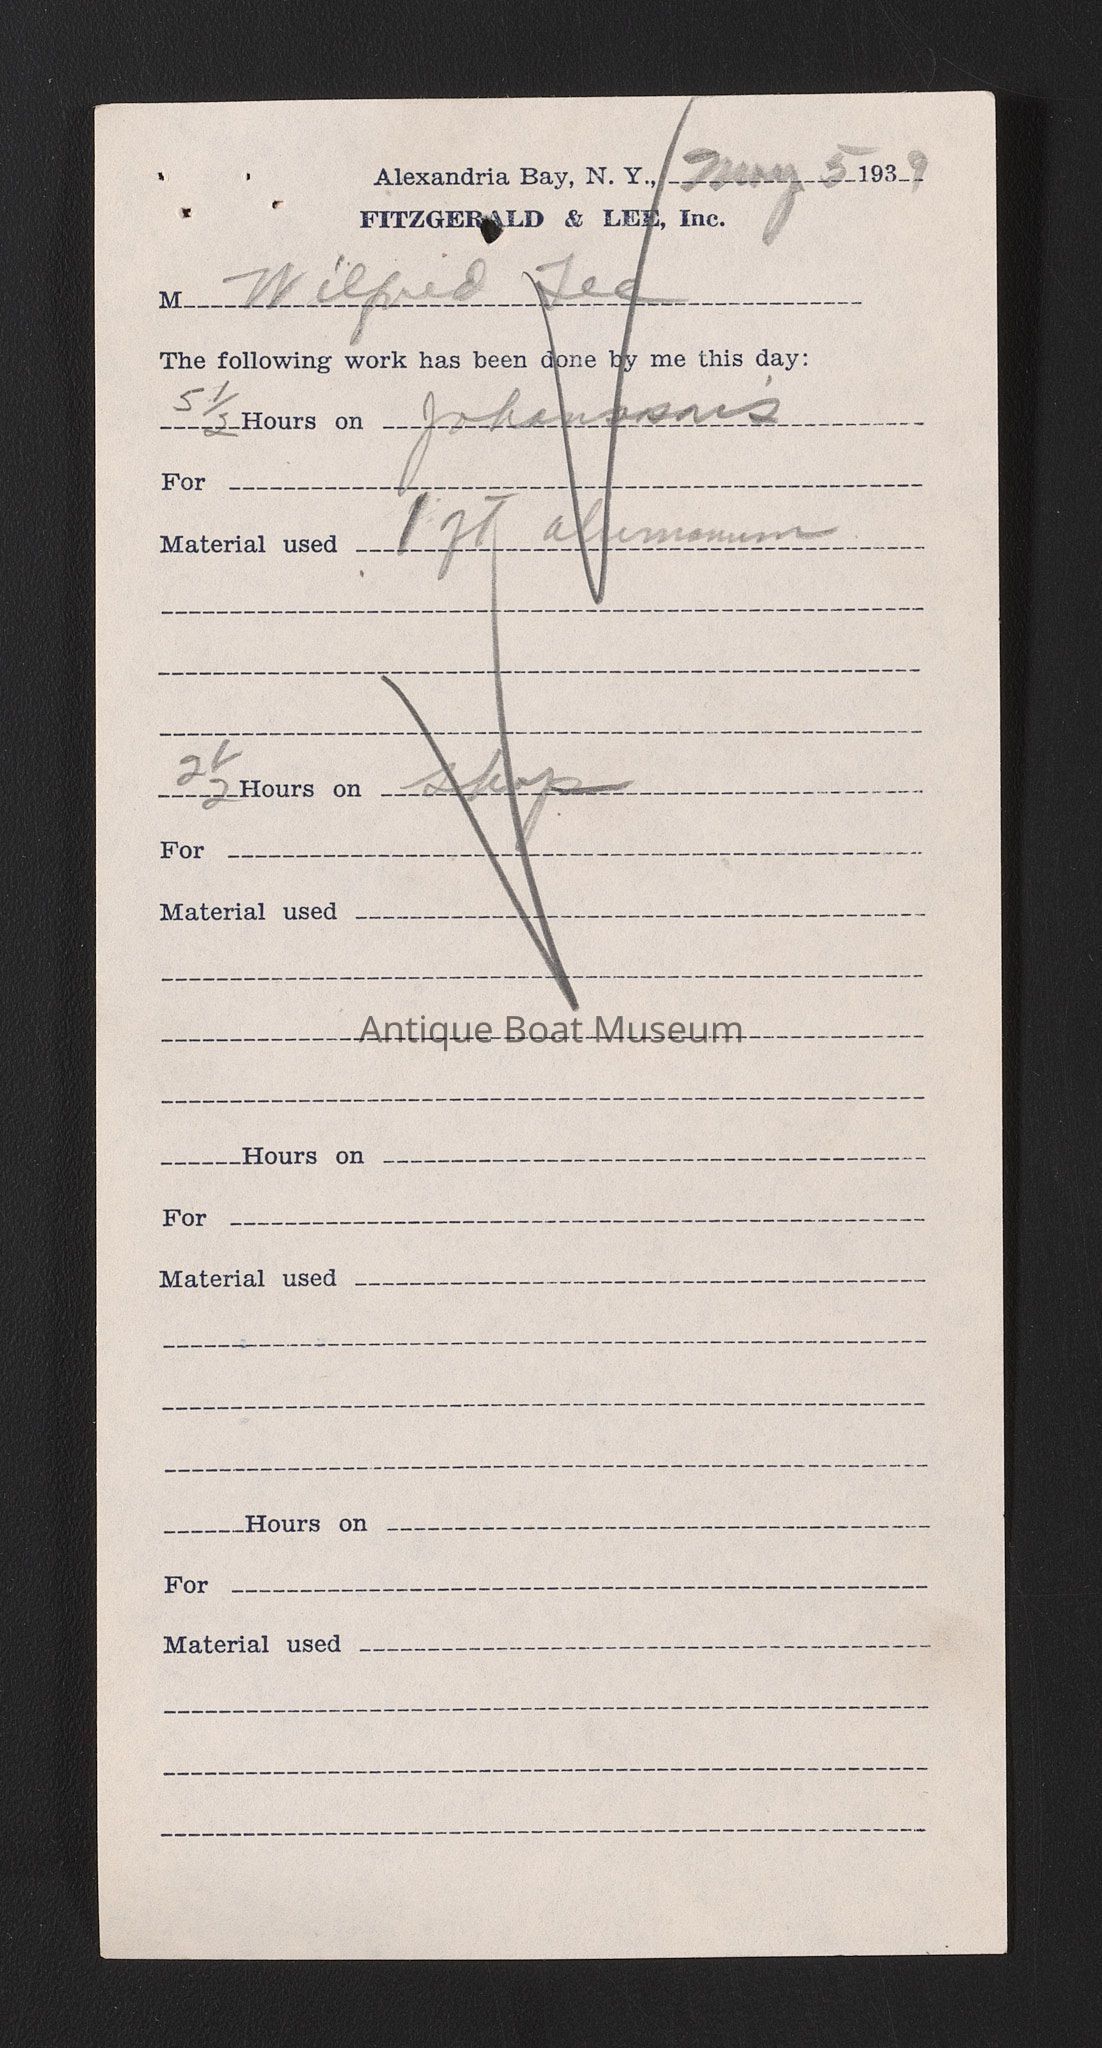 Alexandria Bay, N. Y., May 5 1939
FITZGERALD & LEE, Inc.
M Wilfred Lee
The following work has been done by me this day:
5 1/2 Hours on Johanson's
For
Material used 1 qt alumanum
2 1/2 Hours on shop
For
Material used
Antique Boat Museum
Hours on
For
Material used
Hours on
For
Material used